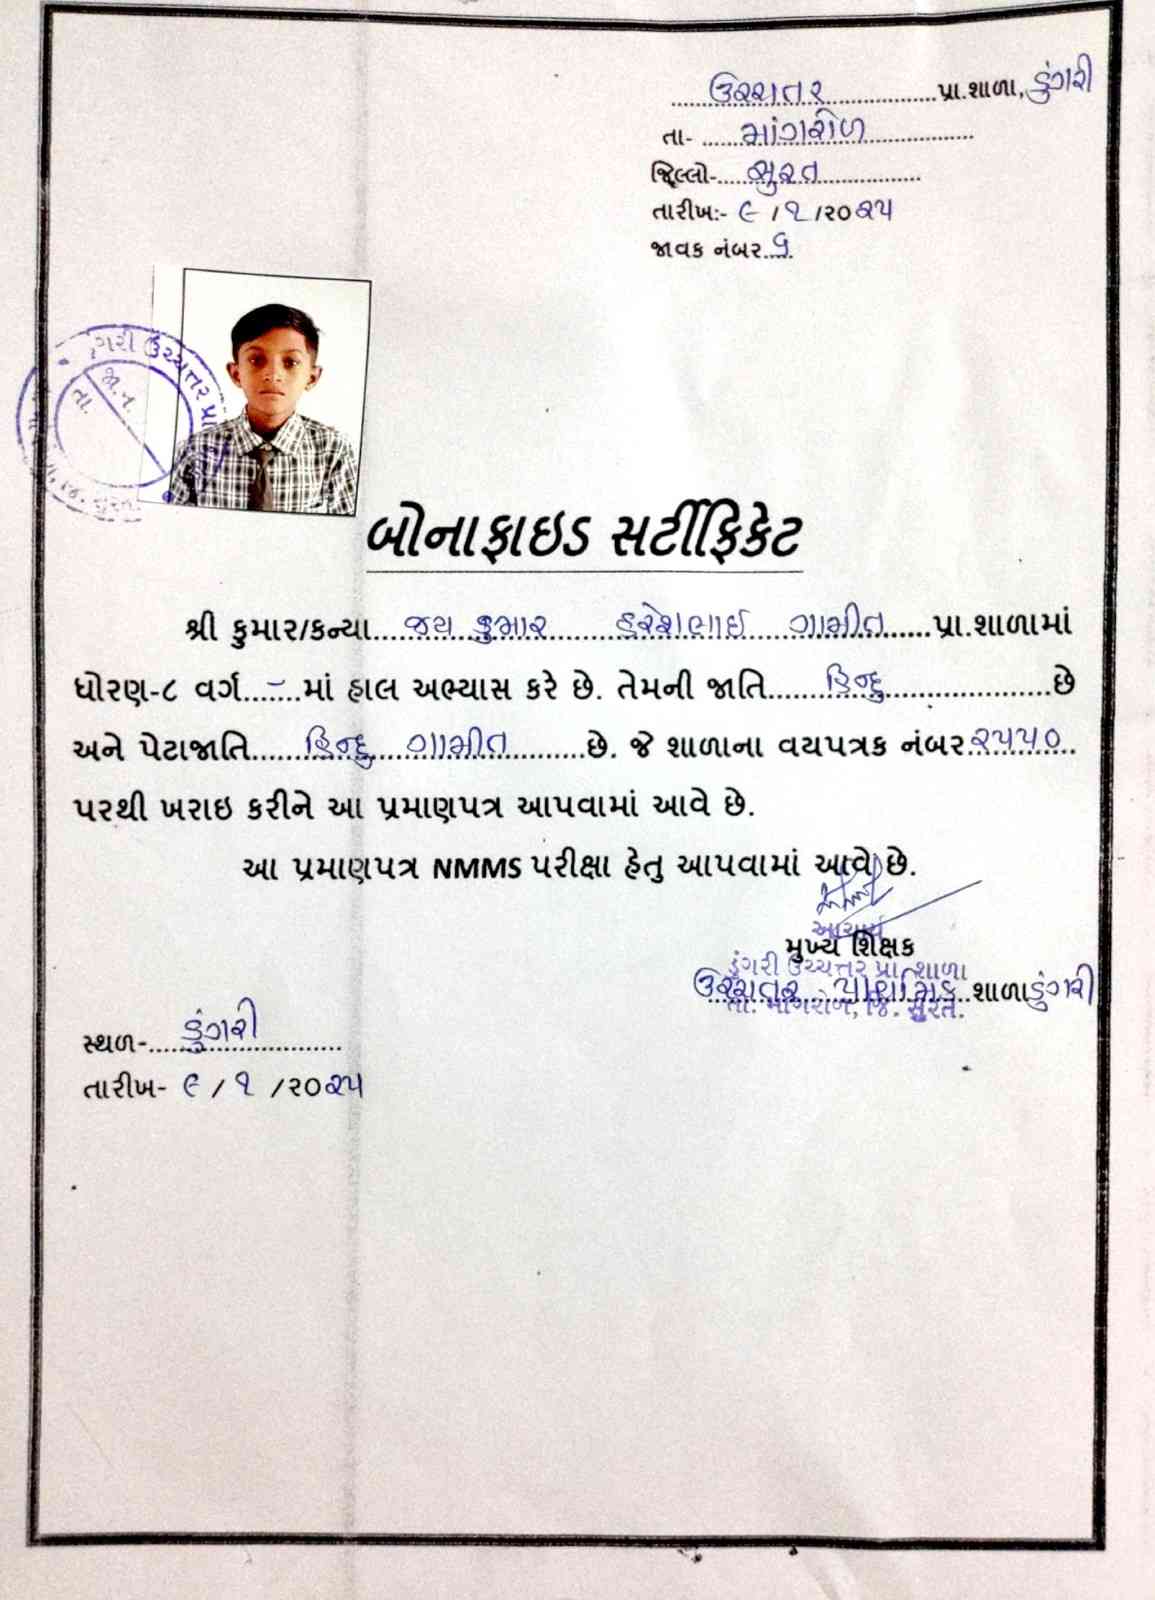 ઉચ્ચતર પ્રા.શાળા, ડુંગરી
તા- માંગરોળ
જિલ્લો- સુરત
તારીખ:- ૯ / ૧ /૨૦૨૫
જાવક નંબર ૬
ગરી ઉચ્ચત્તર પ્રા
જા.ન.
તા.
જિ. સુરત.
બોનાફાઇડ સર્ટીફિકેટ
શ્રી કુમાર/કન્યા જય કુમાર હરેશભાઈ ગામીત પ્રા.શાળામાં
ધોરણ-૮ વર્ગ - માં હાલ અભ્યાસ કરે છે. તેમની જાતિ હિન્દુ છે
અને પેટાજાતિ હિન્દુ ગામીત છે. જે શાળાના વયપત્રક નંબર ૨૫૫૦
પરથી ખરાઇ કરીને આ પ્રમાણપત્ર આપવામાં આવે છે.
આ પ્રમાણપત્ર NMMS પરીક્ષા હેતુ આપવામાં આવે છે.
આચાર્ય
મુખ્ય શિક્ષક
ડુંગરી ઉચ્ચત્તર પ્રા. શાળા
ઉચ્ચતર પ્રાથમિક શાળા ડુંગરી
તા. માંગરોળ, જિ. સુરત.
સ્થળ- ડુંગરી
તારીખ- ૯ / ૧ /૨૦૨૫